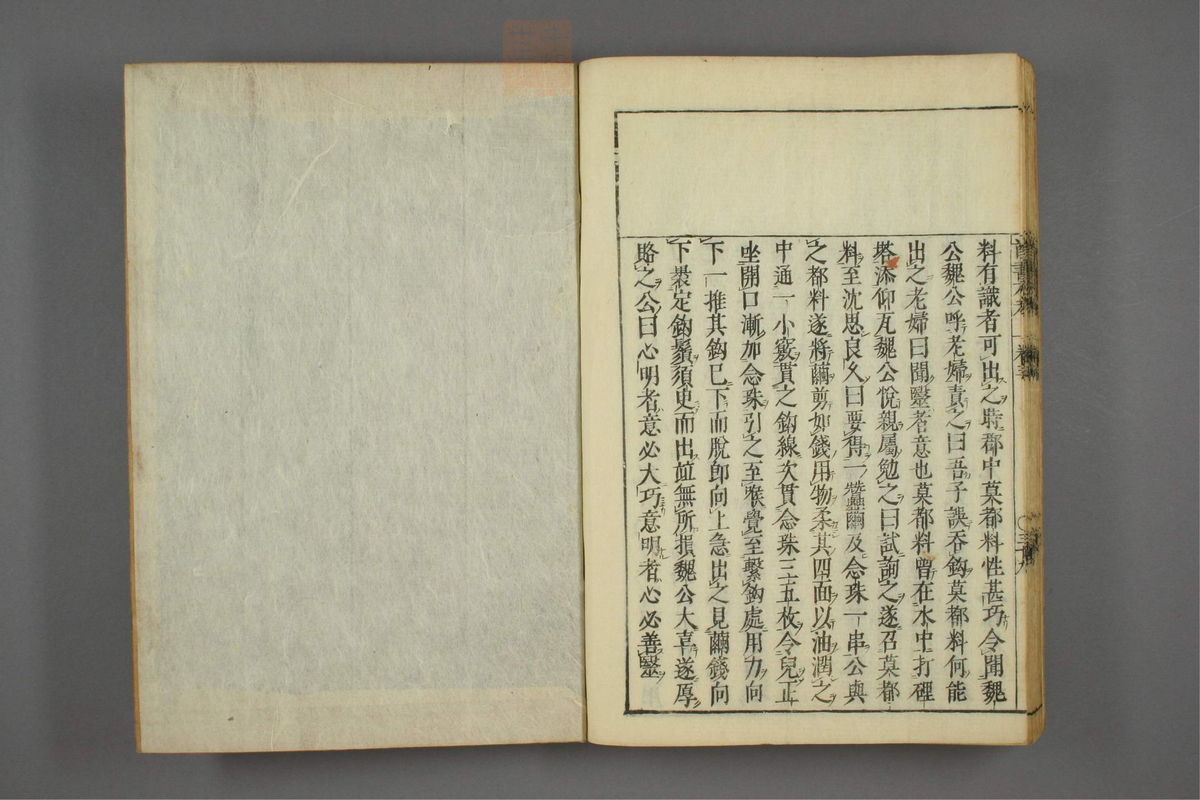 料有識者可出之時郡中莫都料性甚巧令聞魏
公魏公呼老婦責之曰吾子誤吞鈎莫都料何能
出之老婦曰聞毉者意也莫都料曾在水中打碑
塔添仰瓦魏公悅親屬勉之曰試詢之遂召莫都
料至沈思良久曰要得一蠶繭及念珠一串公與
之都料遂將繭剪如錢用物柔其四面以油潤之
中通一小竅貫之鈎線次貫念珠三五枚令兒正
坐開口漸加念珠引之至喉覺至繫鈎處用力向
下一推其鈎已下而脫即向上急出之見繭錢向
下裹定鈎鬚須臾而出並無所損魏公大喜遂厚
賂之公曰心明者意必大巧意明者心必善毉